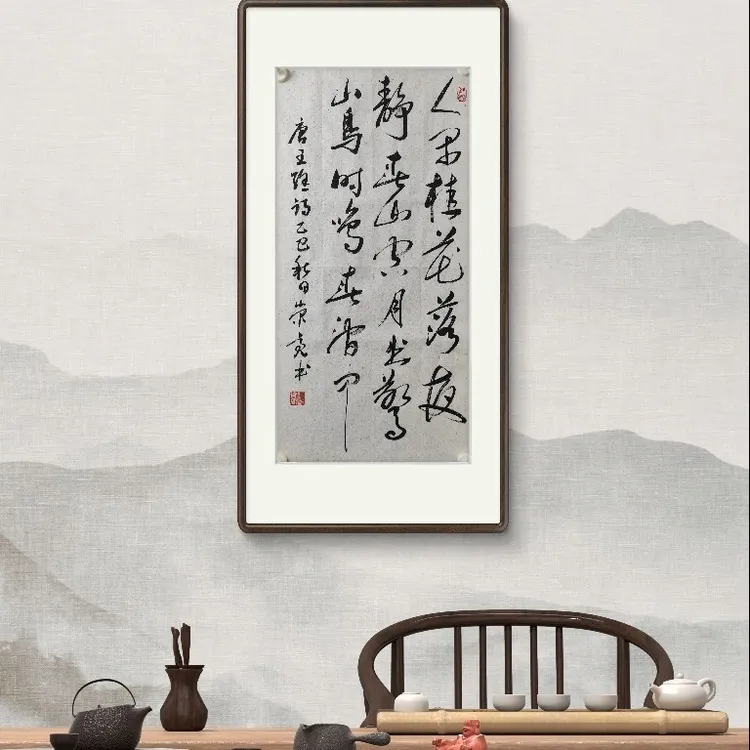 人闲桂花落夜
静春山空月出惊
山鸟时鸣春涧中
唐王维诗乙巳秋书